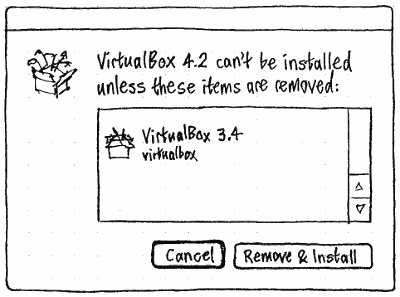 VirtualBox 4.2 can't be installed
unless these items are removed:
VirtualBox 3.4
virtualbox
Cancel
Remove & Install